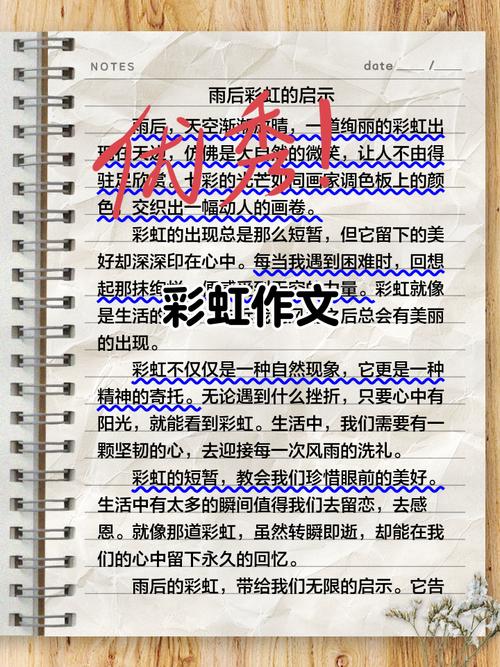 NOTES
date ____ / ____
雨后彩虹的启示
优秀!
雨后,天空渐渐放晴,一道绚丽的彩虹出
现在天边,仿佛是大自然的微笑,让人不由得
驻足欣赏。七彩的光芒如同画家调色板上的颜
色,交织出一幅动人的画卷。
彩虹的出现总是那么短暂,但它留下的美
好却深深印在心中。每当我遇到困难时,回想
起那抹 力量。彩虹就像
彩虹作文
是生活的 后总会有美丽
的出现。
彩虹不仅仅是一种自然现象,它更是一种
精神的寄托。无论遇到什么挫折,只要心中有
阳光,就能看到彩虹。生活中,我们需要有一
颗坚韧的心,去迎接每一次风雨的洗礼。
彩虹的短暂,教会我们珍惜眼前的美好。
生活中有太多的瞬间值得我们去留恋,去感
恩。就像那道彩虹,虽然转瞬即逝,却能在我
们的心中留下永久的回忆。
雨后的彩虹,带给我们无限的启示。它告